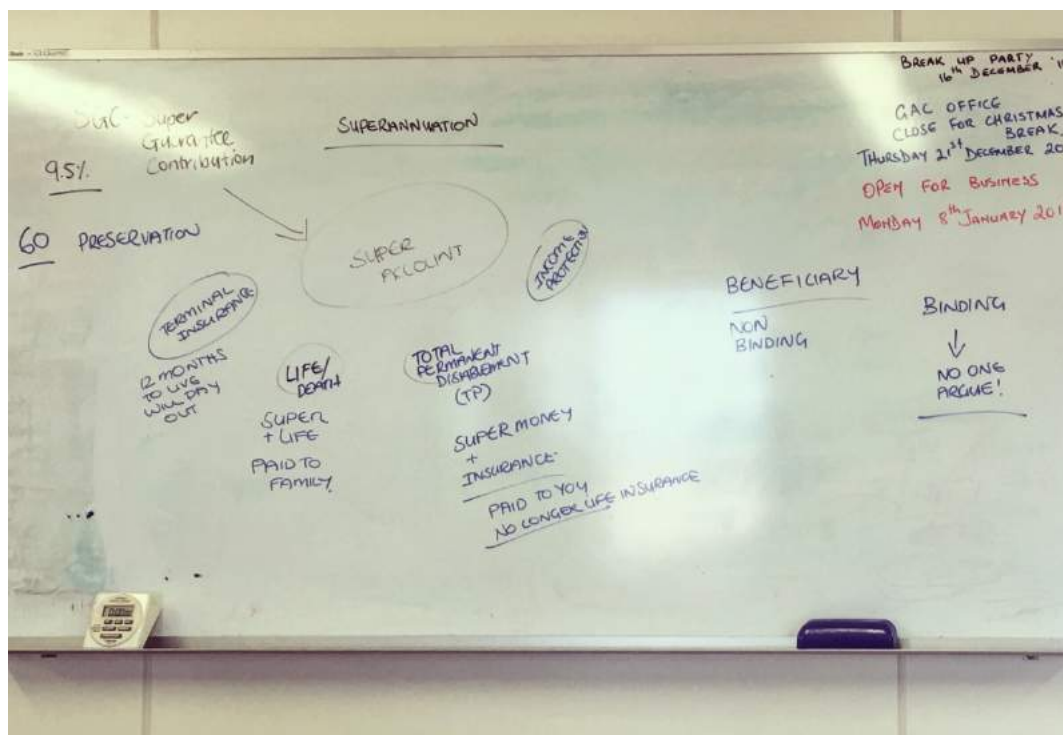 SGC Super
Gurantee
Contribution
9.5%
60 PRESERVATION
SUPERANNUATION
SUPER
ACCOUNT
INCOME
PROTECTION
TERMINAL
INSURANCE
12 MONTHS
TO LIVE
WILL PAY
OUT
LIFE/
DEATH
SUPER
+ LIFE
PAID TO
FAMILY.
TOTAL
PERMANENT
DISABLEMENT
(TP)
SUPER MONEY
+
INSURANCE.
PAID TO YOU
NO LONGER LIFE INSURANCE
BENEFICIARY
NON
BINDING
BINDING
NO ONE
ARGUE!
BREAK UP PARTY
16th DECEMBER
GAC OFFICE
CLOSE FOR CHRISTMAS
BREAK
THURSDAY 21st DECEMBER 20
OPEN FOR BUSINESS
MONDAY 8th JANUARY 201